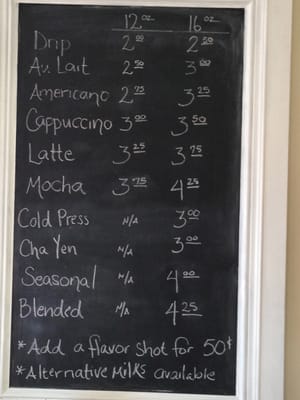 12 oz 16 oz
Drip 2 00 2 50
Au Lait 2 50 3 00
Americano 2 75 3 25
Cappuccino 3 00 3 50
Latte 3 25 3 75
Mocha 3 75 4 25
Cold Press N/A 3 00
Cha Yen N/A 3 00
Seasonal N/A 4 00
Blended N/A 4 25
*Add a flavor shot for 50¢
*Alternative Milks available